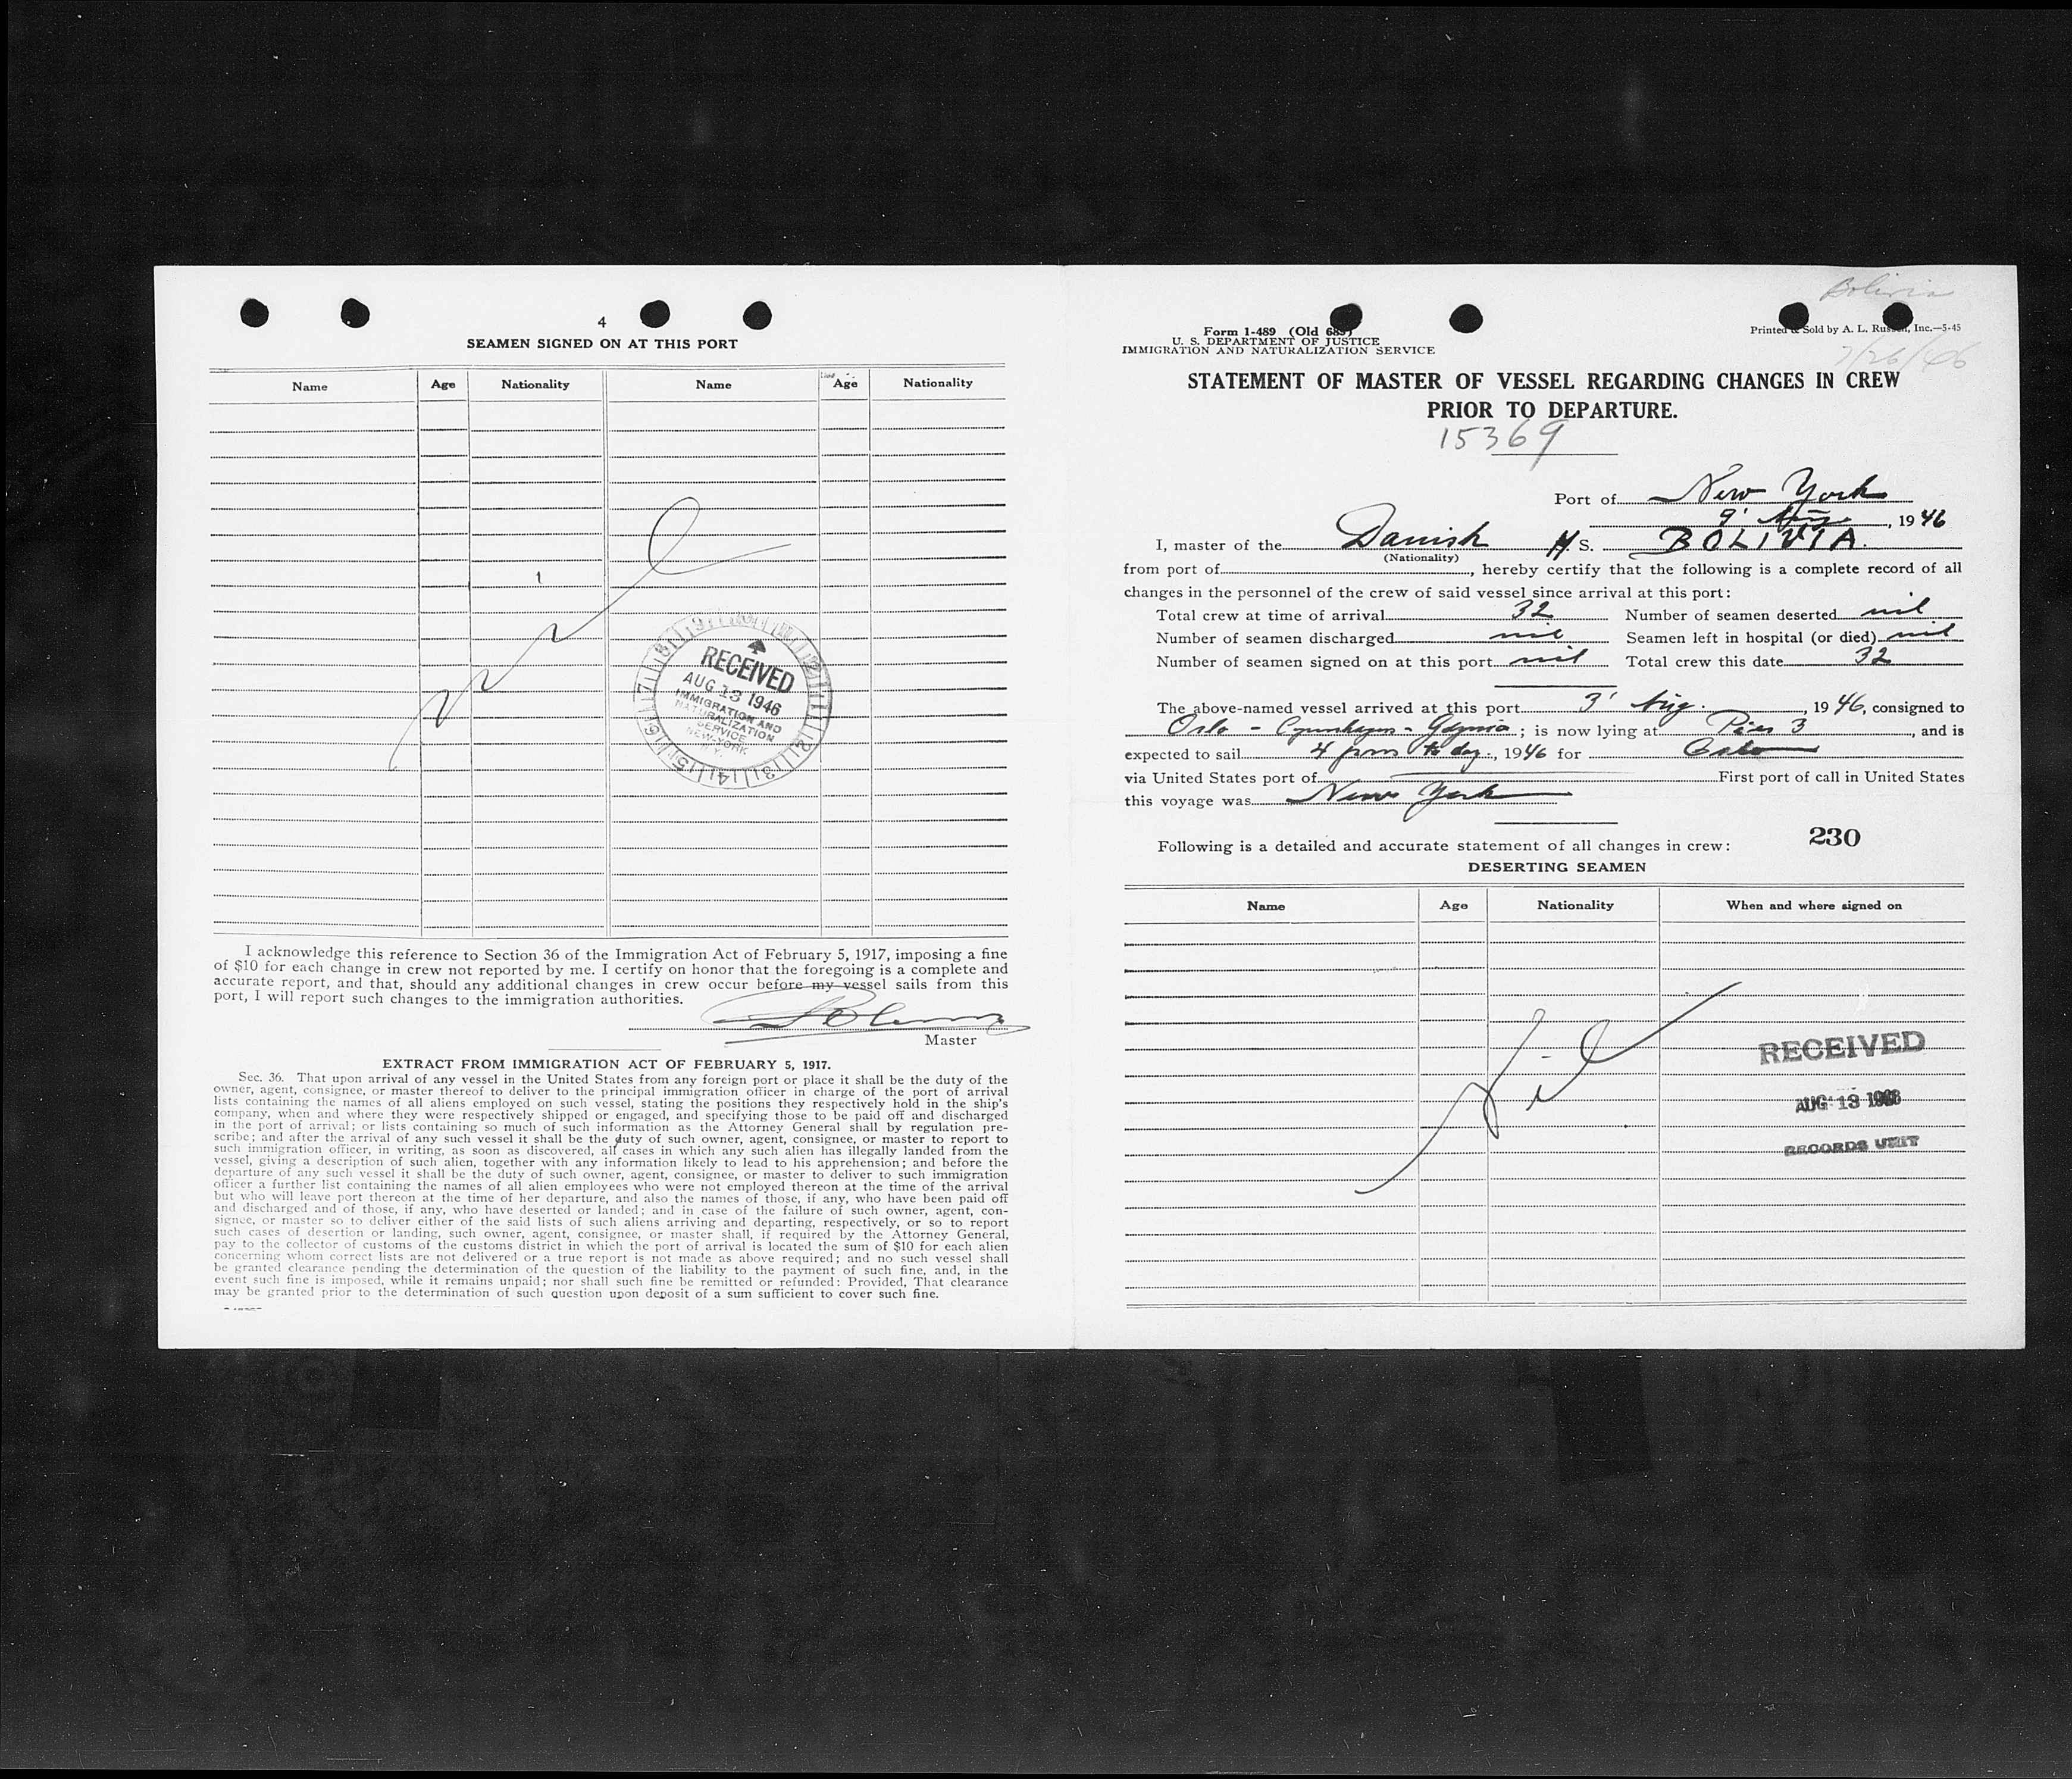 4
SEAMEN SIGNED ON AT THIS PORT
Name Age Nationality Name Age Nationality
nil
RECEIVED
AUG 13 1946
IMMIGRATION AND
NATURALIZATION
SERVICE
NEW-YORK
N.Y.
I acknowledge this reference to Section 36 of the Immigration Act of February 5, 1917, imposing a fine
of $10 for each change in crew not reported by me. I certify on honor that the foregoing is a complete and
accurate report, and that, should any additional changes in crew occur before my vessel sails from this
port, I will report such changes to the immigration authorities.
Master
EXTRACT FROM IMMIGRATION ACT OF FEBRUARY 5, 1917.
Sec. 36. That upon arrival of any vessel in the United States from any foreign port or place it shall be the duty of the
owner, agent, consignee, or master thereof to deliver to the principal immigration officer in charge of the port of arrival
lists containing the names of all aliens employed on such vessel, stating the positions they respectively hold in the ship's
company, when and where they were respectively shipped or engaged, and specifying those to be paid off and discharged
in the port of arrival; or lists containing so much of such information as the Attorney General shall by regulation pre-
scribe; and after the arrival of any such vessel it shall be the duty of such owner, agent, consignee, or master to report to
such immigration officer, in writing, as soon as discovered, all cases in which any such alien has illegally landed from the
vessel, giving a description of such alien, together with any information likely to lead to his apprehension; and before the
departure of any such vessel it shall be the duty of such owner, agent, consignee, or master to deliver to such immigration
officer a further list containing the names of all alien employees who were not employed thereon at the time of the arrival
but who will leave port thereon at the time of her departure, and also the names of those, if any, who have been paid off
and discharged and of those, if any, who have deserted or landed; and in case of the failure of such owner, agent, con-
signee, or master so to deliver either of the said lists of such aliens arriving and departing, respectively, or so to report
such cases of desertion or landing, such owner, agent, consignee, or master shall, if required by the Attorney General,
pay to the collector of customs of the customs district in which the port of arrival is located the sum of $10 for each alien
concerning whom correct lists are not delivered or a true report is not made as above required; and no such vessel shall
be granted clearance pending the determination of the question of the liability to the payment of such fine, and, in the
event such fine is imposed, while it remains unpaid; nor shall such fine be remitted or refunded: Provided, That clearance
may be granted prior to the determination of such question upon deposit of a sum sufficient to cover such fine.
Bolivia
Form 1-489 (Old 689)
U. S. DEPARTMENT OF JUSTICE
IMMIGRATION AND NATURALIZATION SERVICE
Printed & Sold by A. L. Russell, Inc.—5-45
7/26/46
STATEMENT OF MASTER OF VESSEL REGARDING CHANGES IN CREW
PRIOR TO DEPARTURE.
15369
Port of New York
9' Aug, 1946
I, master of the Danish M. S. BOLIVIA.
(Nationality)
from port of, hereby certify that the following is a complete record of all
changes in the personnel of the crew of said vessel since arrival at this port:
Total crew at time of arrival 32 Number of seamen deserted nil
Number of seamen discharged nil Seamen left in hospital (or died) nil
Number of seamen signed on at this port nil Total crew this date 32
The above-named vessel arrived at this port 3' Aug., 1946, consigned to
Oslo - - Gdynia; is now lying at Pier 3, and is
expected to sail 4 pm to day, 1946 for Oslo
via United States port of First port of call in United States
this voyage was New York
230
Following is a detailed and accurate statement of all changes in crew:
DESERTING SEAMEN
Name Age Nationality When and where signed on
Nil
RECEIVED
AUG 13 1946
RECORDS UNIT